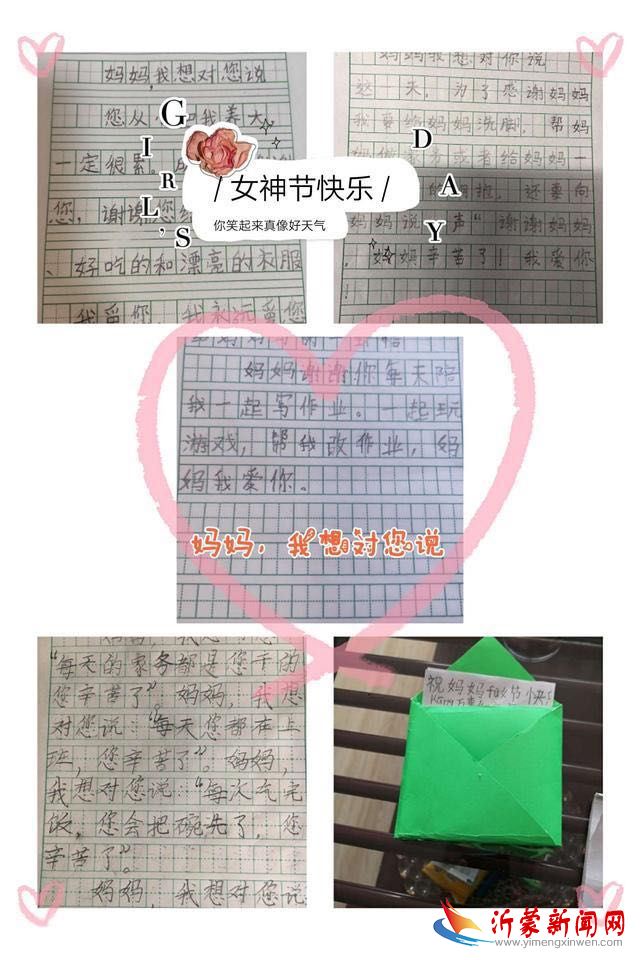 妈妈,我想对您说
您从
我养大
一定很累。
您,谢谢您
、好吃的和漂亮的衣服
我爱你 我永远爱您
GIRL'S
/ 女神节快乐 /
你笑起来真像好天气
DAY
妈妈我想对你说
这一天,为了感谢妈妈
我要给妈妈洗脚,帮妈
妈做家务或者给妈妈一
还要向
妈妈说 声“谢谢妈妈
,妈妈辛苦了!我爱你
!
妈妈谢谢你每天陪
我一起写作业。一起玩
游戏,帮我改作业,妈
妈我爱你。
妈妈,我想对您说
“每天的家务都是您干的
您辛苦了”妈妈,我想
对您说“每天您都在上
班,您辛苦了”。妈妈,
我想对您说“每次吃完
饭,您会把碗洗了,您
辛苦了”。
妈妈,我想对您说
祝妈妈 节快
沂蒙新闻网
www.yimengxinwen.com